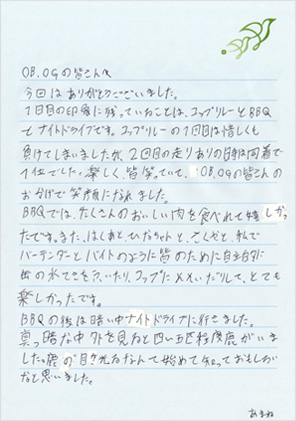 OB.OGの皆さんへ
今回はありがとうございました。
1日目の印象に残っていることは、コップリレーとBBQ
とナイトドライブです。コップリレーの1回目は惜しくも
負けてしまいましたが、2回目の走りありの時は同着で
1位でした。楽しく、皆笑っていて、OB.OGの皆さんの
おかげで笑顔になれました。
BBQでは、たくさんのおいしい肉を食べれて嬉しかっ
たです。また、はしあと、ひなちゃんと、さくらと、私で
バーテンダーとバイトのように皆のために自主的に
水 コップに とても
楽しかったです。
BBQの後は暗い中ナイトドライブに行きました。
真っ暗な中外を見ると四い五匹程度鹿がいま
した。鹿の目が光るなんて始めて知っておもしろい
なと思いました。
あまね